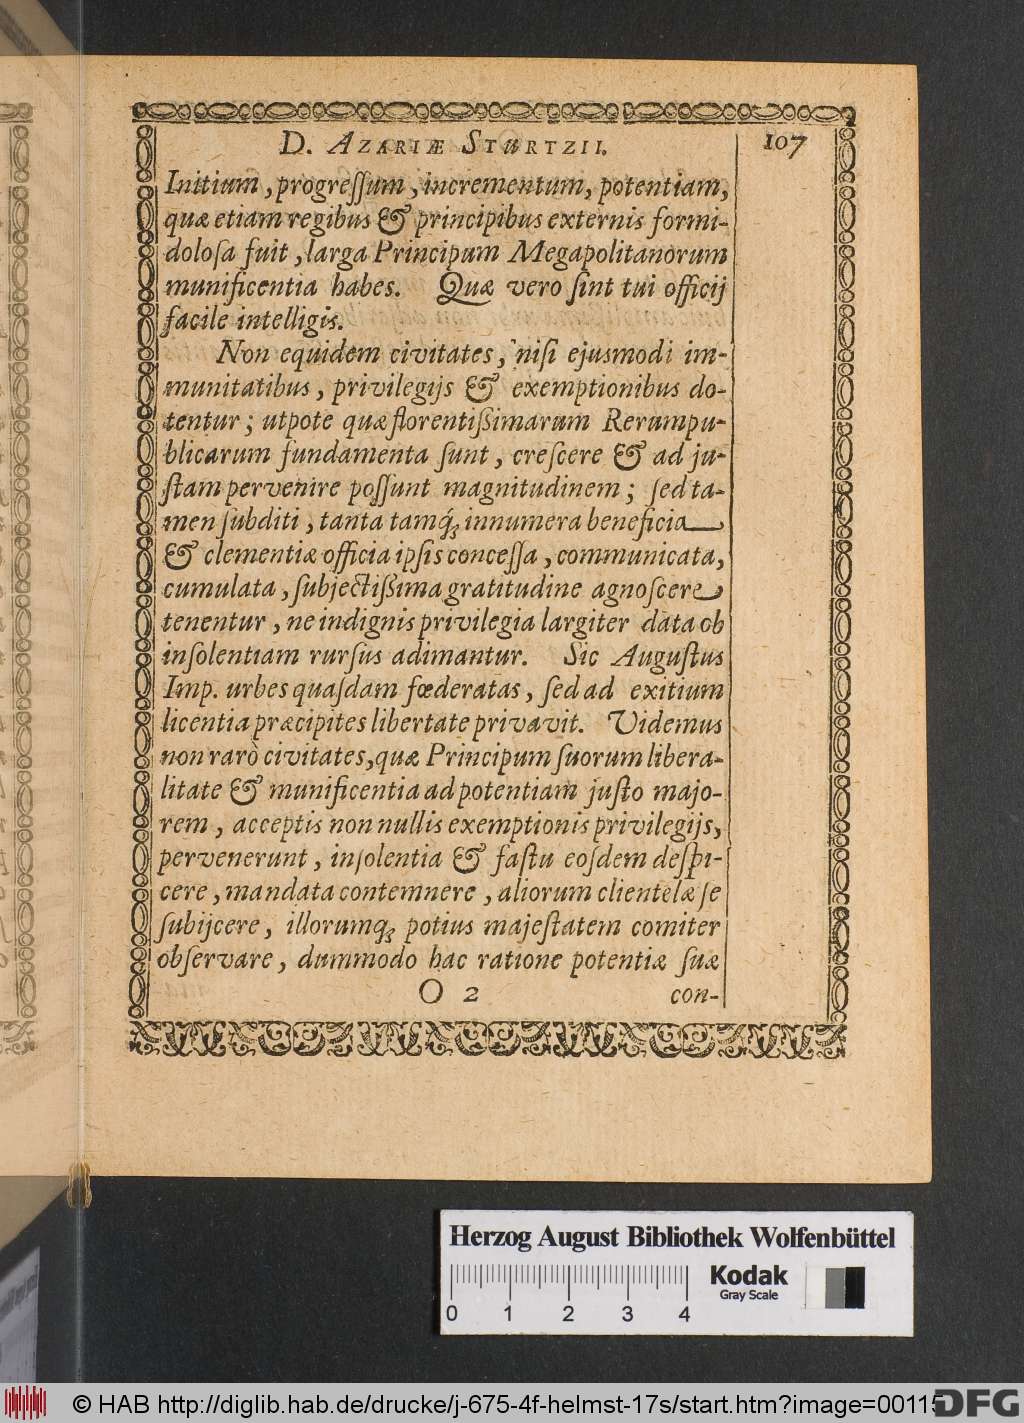 D. AZARIÆ STURTZII. 107
Initium, progreſſum, incrementum, potentiam,
quæ etiam regibus & principibus externis formi-
doloſa fuit, larga Principum Megapolitanorum
munificentia habes. Quæ vero ſint tui officij
facile intelligis.
Non equidem civitates, niſi ejusmodi im-
munitatibus, privilegijs & exemptionibus do-
tentur; utpote quæ florentiſſimarum Rerumpu-
blicarum fundamenta ſunt, creſcere & ad ju-
ſtam pervenire poſſunt magnitudinem; ſed ta-
men ſubditi, tanta tamq́ꝫ innumera beneficia
& clementiæ officia ipſis conceſſa, communicata,
cumulata, ſubjectiſſima gratitudine agnoſcere
tenentur, ne indignis privilegia largiter data ob
inſolentiam rurſus adimantur. Sic Auguſtus
Imp. urbes quaſdam fœderatas, ſed ad exitium
licentia præcipites libertate privavit. Videmus
non rarò civitates, quæ Principum ſuorum libera-
litate & munificentia ad potentiam juſto majo-
rem, acceptis non nullis exemptionis privilegijs,
pervenerunt, inſolentia & faſtu eoſdem deſpi-
cere, mandata contemnere, aliorum clientelæ ſe
ſubijcere, illorumqꝫ potius majeſtatem comiter
obſervare, dummodo hac ratione potentiæ ſuæ
O 2 con-
Herzog August Bibliothek Wolfenbüttel
Kodak
Gray Scale
0 1 2 3 4
© HAB http://diglib.hab.de/drucke/j-675-4f-helmst-17s/start.htm?image=00115
DFG